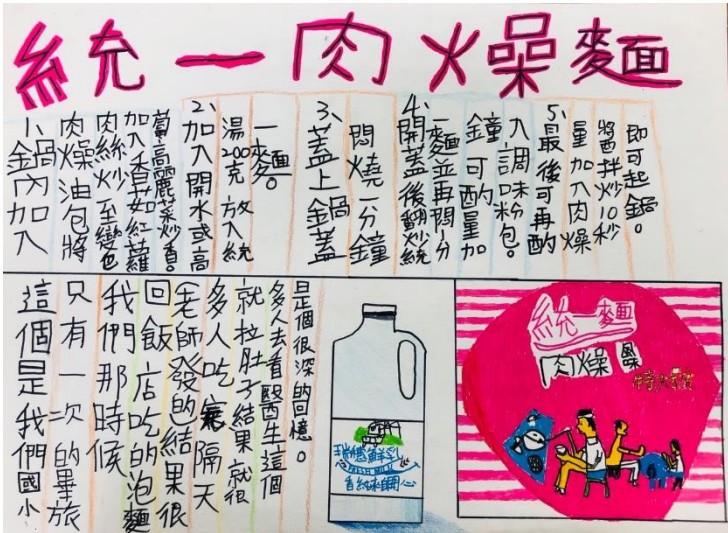 統一肉燥麵
1、鍋內加入
肉燥油包將
肉絲炒至變色
加入香菇紅蘿
蔔高麗菜炒香。
2、加入開水或高
湯200克 放入統
一麵。
3、蓋上鍋蓋
悶燒一分鐘
4、開蓋後翻炒統
一麵並再悶1分
鐘可酌量加
入調味粉包。
5、最後可再酌
量加入肉燥
醬拌炒10秒
即可起鍋。
這個是我們國小
只有一次的畢旅
我們那時候
回飯店吃的泡麵
老師發的結果很
多人吃完隔天
就拉肚子結果就很
多人去看醫生這個
是個很深的回憶。
瑞穗鮮乳
FRESH MILK
統一麵
肉燥